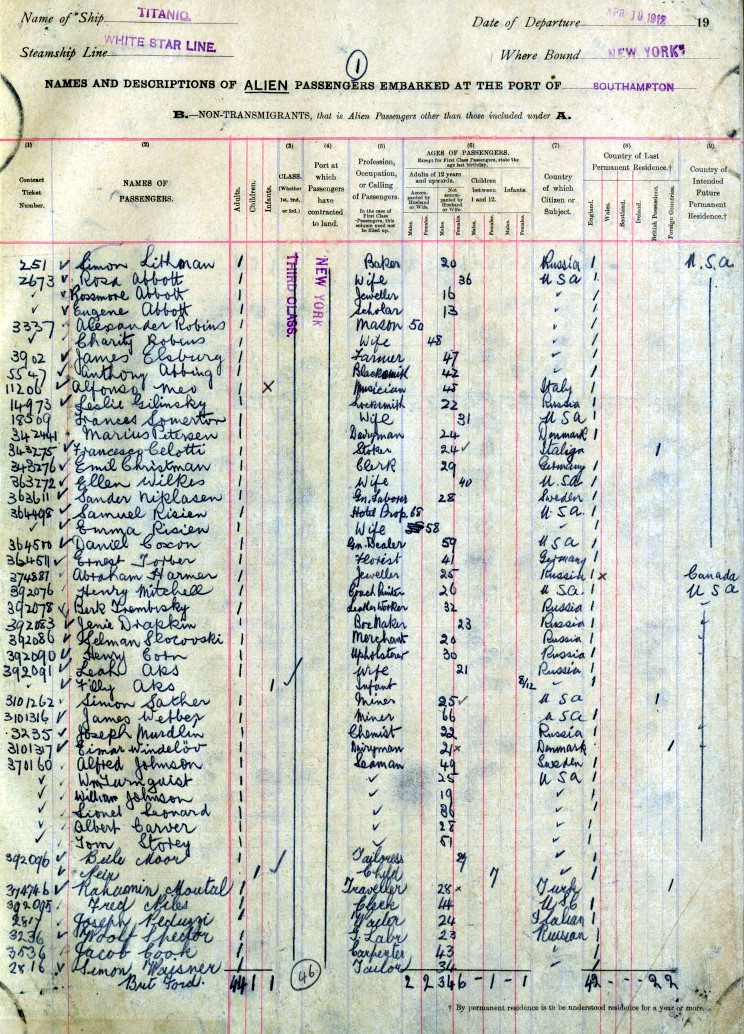 Name of Ship TITANIC. Date of Departure APR 10 1912 19
Steamship Line WHITE STAR LINE. Where Bound NEW YORK
1
NAMES AND DESCRIPTIONS OF ALIEN PASSENGERS EMBARKED AT THE PORT OF SOUTHAMPTON
B.—NON-TRANSMIGRANTS, that is Alien Passengers other than those included under A.
(1) (2) (3) (4) (5) (6) (7) (8) (9)
Contract Ticket Number.
NAMES OF PASSENGERS.
Adults. Children. Infants.
CLASS. (Whether 1st, 2nd, or 3rd.)
Port at which Passengers have contracted to land.
Profession, Occupation, or Calling of Passengers.
In the case of First Class Passengers, this column need not be filled up.
AGES OF PASSENGERS.
Except for First Class Passengers, state the age last birthday.
Adults of 12 years and upwards.
Accompanied by Husband or Wife. Not accompanied by Husband or Wife.
Children between 1 and 12. Infants.
Males. Females. Males. Females. Males. Females. Males. Females.
Country of which Citizen or Subject.
Country of Last Permanent Residence.†
England. Wales. Scotland. Ireland. British Possessions. Foreign Countries.
Country of Intended Future Permanent Residence.†
THIRD CLASS. NEW YORK
251 ✓ Simon Lithman 1 Baker 20 Russia 1 U.S.A
2673 ✓ Rosa Abbott 1 Wife 36 U S A 1
✓ Rossmore Abbott 1 Jeweller 16 " 1
✓ Eugene Abbott 1 Scholar 13 " 1
3337 ✓ Alexander Robins 1 Mason 50 " 1
✓ Charity Robins 1 Wife 48 " 1
3902 ✓ James Elsburg 1 Farmer 47 " 1
5547 ✓ Anthony Abbing 1 Blacksmith 42 " 1
11206 ✓ Alfonso Meo 1 x Musician 48 Italy 1
14973 ✓ Leslie Gilinsky 1 Locksmith 22 Russia 1
18509 Frances Somerton 1 Wife 31 U S A 1
342441 Marius Petersen 1 Dairyman 24 Denmark 1
343275 ✓ Francesco Celotti 1 Stoker 24 ✓ Italian 1
343276 ✓ Emil Christman 1 Clerk 29 Germany 1
363272 ✓ Ellen Wilkes 1 Wife 40 U.S.A 1
363611 ✓ Sander Niklasen 1 Gn. Laborer 28 Sweden 1
364498 ✓ Samuel Risien 1 Hotel Prop. 68 U.S.A. 1
✓ Emma Risien 1 Wife 58 "
364500 ✓ Daniel Coxon 1 Gn. Dealer 59 U S A 1
364511 ✓ Ernest Torber 1 Florist 41 Germany 1
374887 Abraham Harmer 1 Jeweller 25 Russia 1 x Canada
392076 Henry Mitchell 1 Coach Painter 26 U.S.A. 1 U S A
392078 ✓ Berk Trembisky 1 Leather Worker 32 Russia 1
392083 ✓ Jenie Drapkin 1 Box Maker 23 Russia 1
392086 ✓ Selman Slocovski 1 Merchant 20 Russia 1
392090 ✓ Henry Corn 1 Upholsterer 30 Russia 1
392091 ✓ Leah Aks 1 Wife 21 Russia 1
✓ Filly Aks 1 Infant 8/12 " 1
3101262 ✓ Simon Sather 1 Miner 25 ✓ U S A 1
3101316 ✓ James Webber 1 Miner 66 U S A 1
3235 ✓ Joseph Murdlin 1 Chemist 22 Russia 1
3101317 ✓ Eimar Windelöv 1 Dairyman 21 x Denmark 1
370160 Alfred Johnson 1 Seaman 49 Sweden 1
✓ Wm Turnquist 1 ✓ 25 U S A 1
✓ William Johnson 1 ✓ 19 ✓ 1
✓ Lionel Leonard 1 ✓ 36 ✓ 1
✓ Albert Carver 1 ✓ 28 ✓ 1
✓ Tom Storey 1 ✓ 51 ✓ 1
392096 ✓ Beile Moor 1 ✓ Tailoress 27 ✓ 1
✓ Meir 1 Child 7 ✓ 1
374746 ✓ Rahamin Moutal 1 Traveller 28 x Turk 1
392095 Fred Niles 1 Clerk 14 U S C 1
2817 Joseph Peduzzi 1 Tailor 24 Italian 1
3236 ✓ Woolf Spector 1 G Labr 23 Russian 1
3536 Jacob Cook 1 Carpenter 43 ✓ 1
2816 ✓ Simon Weisner 1 Tailor 34 ✓ 1
Brt Ford. 44 1 1 46 2 2 34 6 - 1 - 1 42 - - - 2 2
† By permanent residence is to be understood residence for a year or more.